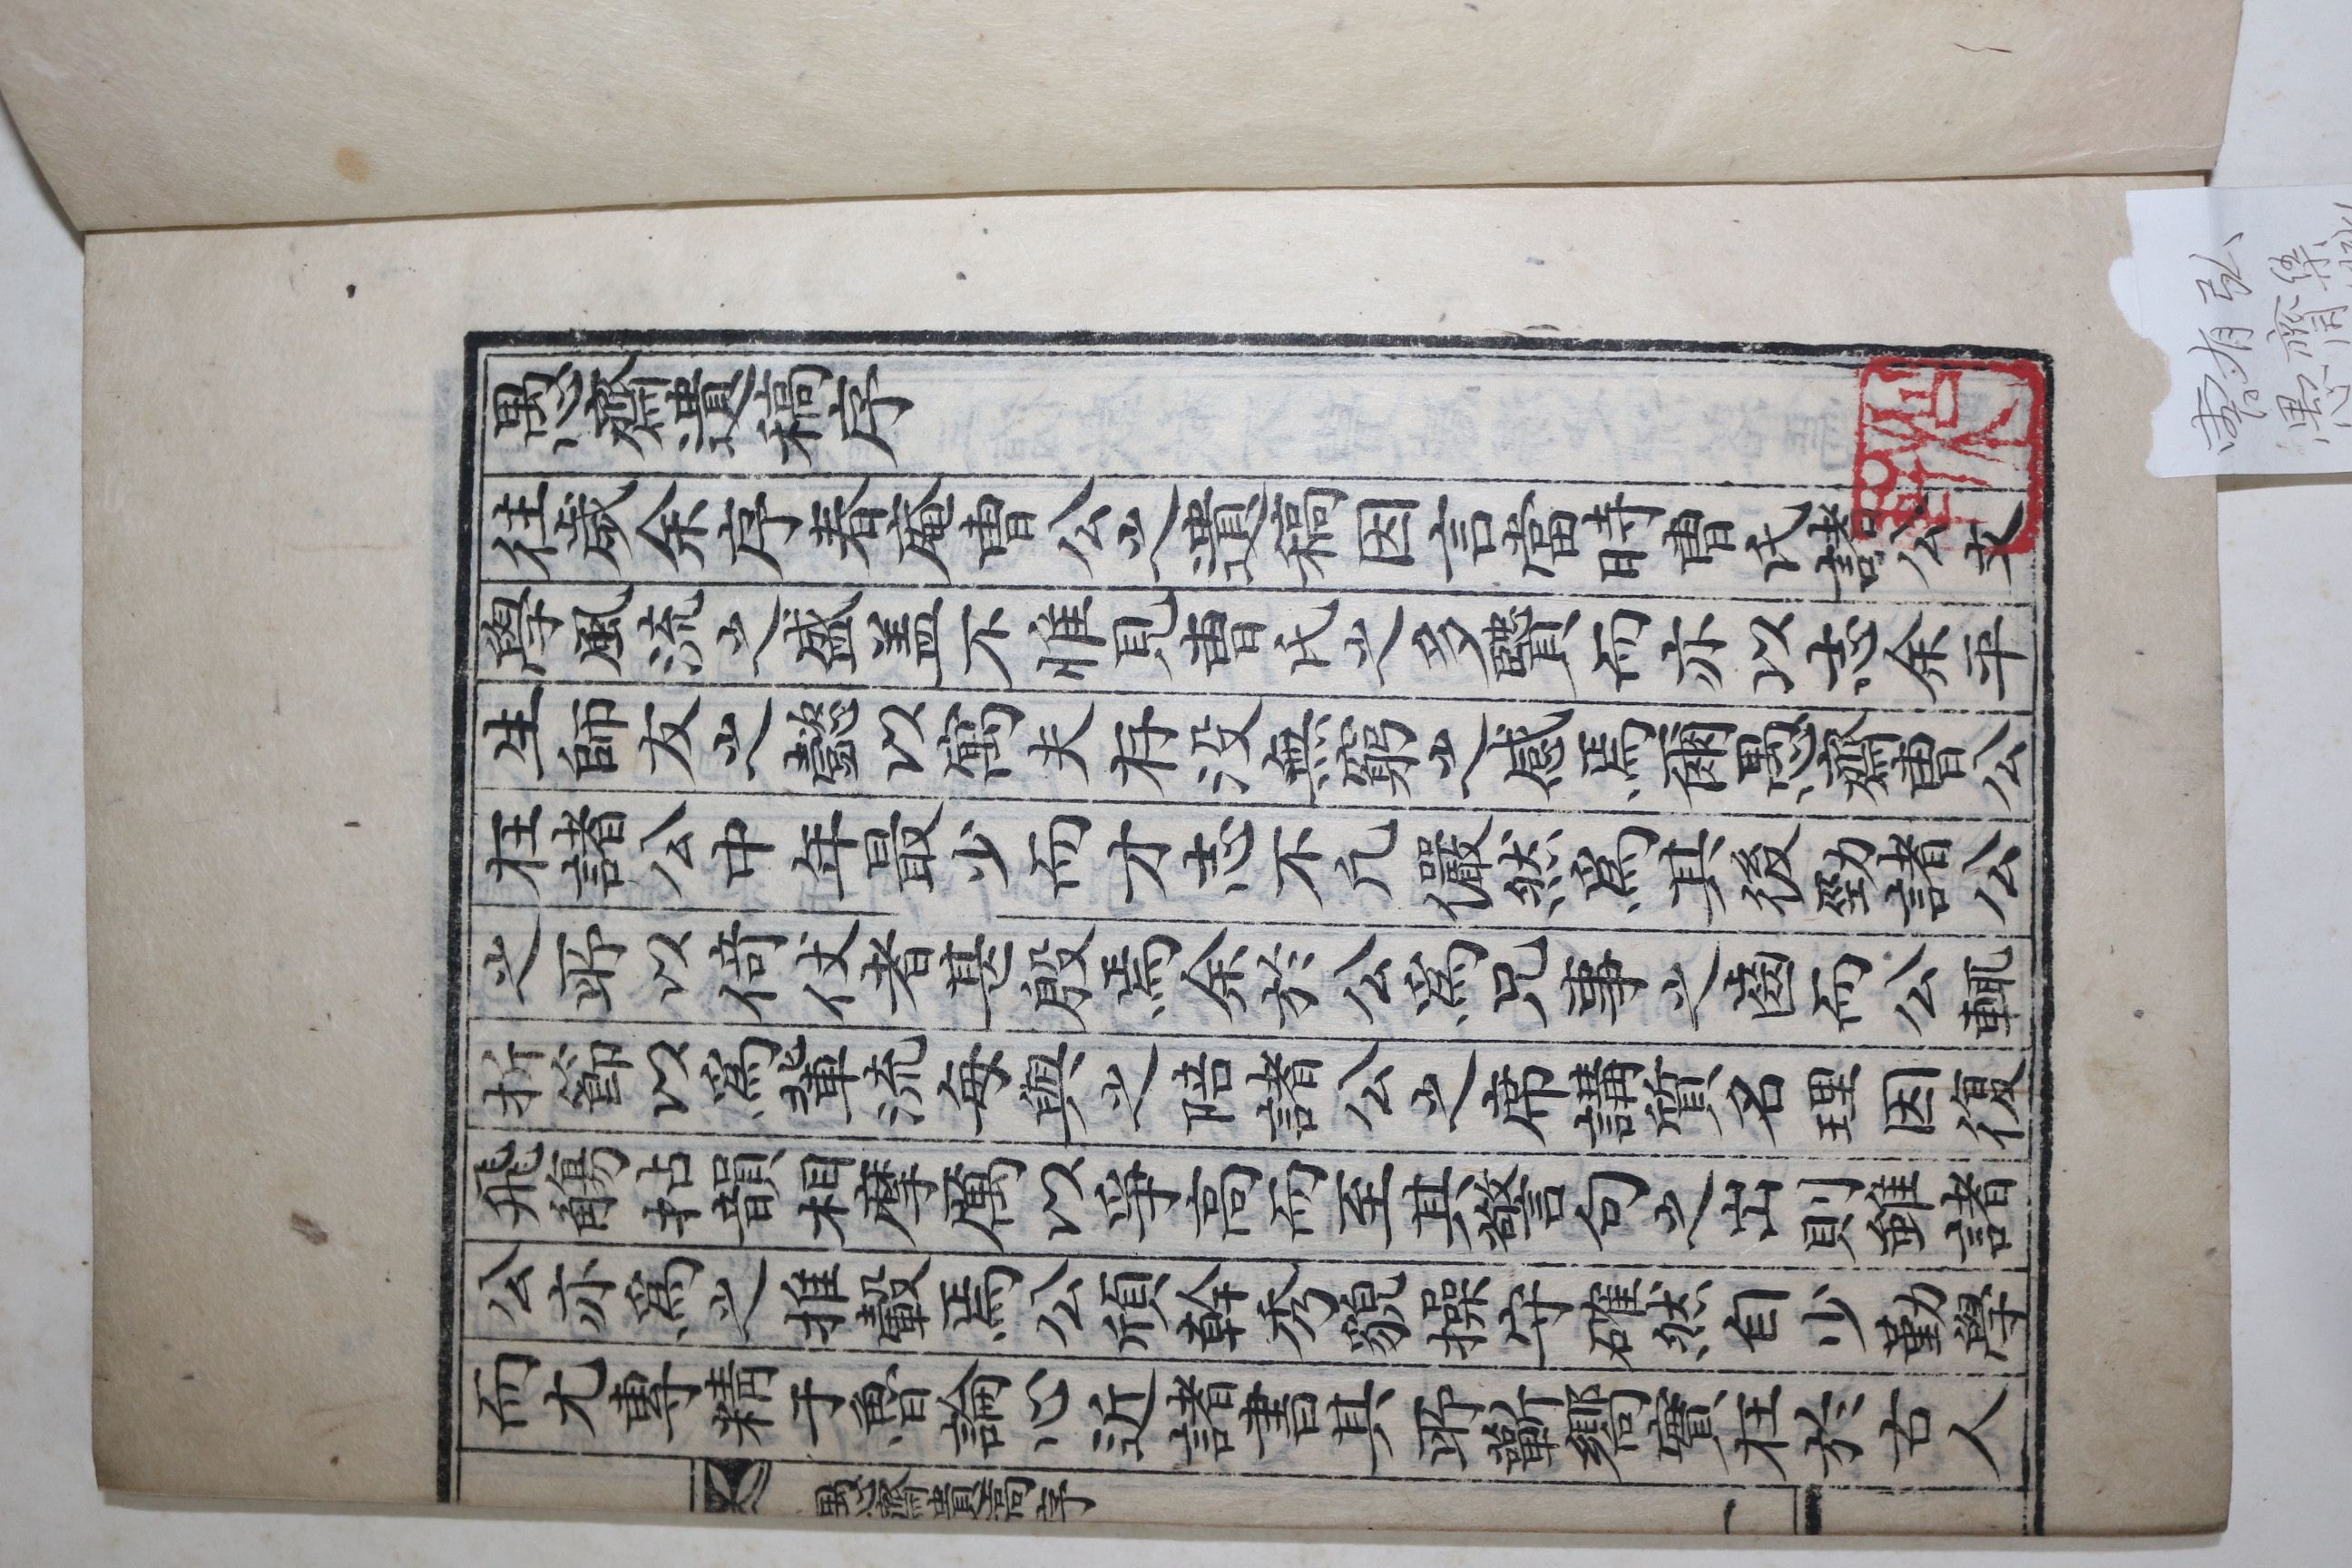 愚齋遺稿序
往歲余序春庵曹公之遺稿因言當時曹氏諸公文
學風流之盛盖不惟見曹氏之多賢而亦以志余平
生師友之懿以寓夫存沒無窮之感焉爾愚齋曹公
在諸公中年最少而才志不凡儼然爲其後勁諸公
之所以倚仗者甚殷焉余於公爲兄事之齒而公輒
折節以爲輩流每與之陪諸公之席講質名理因復
飛觴拈韻相摩厲以爭高而至其警句之出則雖諸
公亦爲之推轂焉公頎幹秀貌操守確然自少勤學
而尤專精于魯論心近諸書其所蘄嚮實在於古人
愚齋遺稿序
一
曺有弘
愚齋集